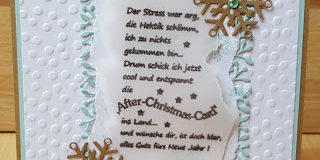 Der Stress war arg,
die Hektik schlimm,
ich zu nichts
gekommen bin...
Drum schick ich jetzt
cool und entspannt
die
"After-Christmas-Card"
ins Land...
und wünsche dir, ist doch klar,
alles Gute fürs Neue Jahr !